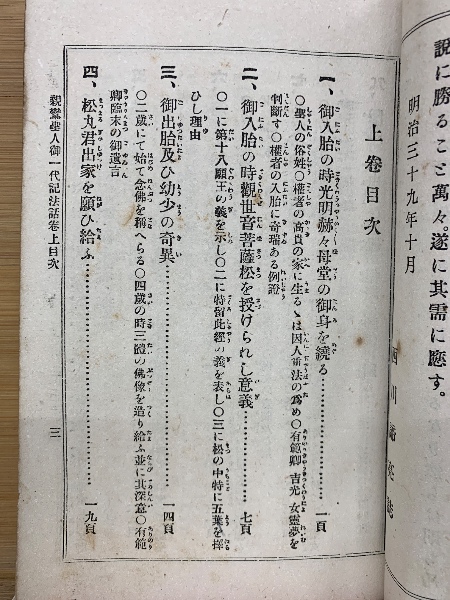 說に勝ること萬々。遂に其需に應す。
明治三十九年十月
上卷目次
一、御入胎の時光明赫々母堂の御身を繞る…………一頁
〇聖人の俗姓〇權者の高貴の家に生るゝは因人重法の爲め〇有範卿吉光女靈夢を
判斷す〇權者の入胎に奇瑞ある例證
二、御入胎の時觀世音菩薩松を授けられし意義…………七頁
〇一に第十八願王の義を示し〇二に特留此經の義を表し〇三に松の中特に五葉を擇
ひし理由
三、御出胎及ひ幼少の奇異…………一四頁
〇二歲にて始て念佛を稱へらる〇四歲の時三體の佛像を造り給ふ並に其深意〇有範
卿臨末の御遺言
四、松丸君出家を願ひ給ふ…………一九頁
親鸞聖人御一代記法話卷上目次
三